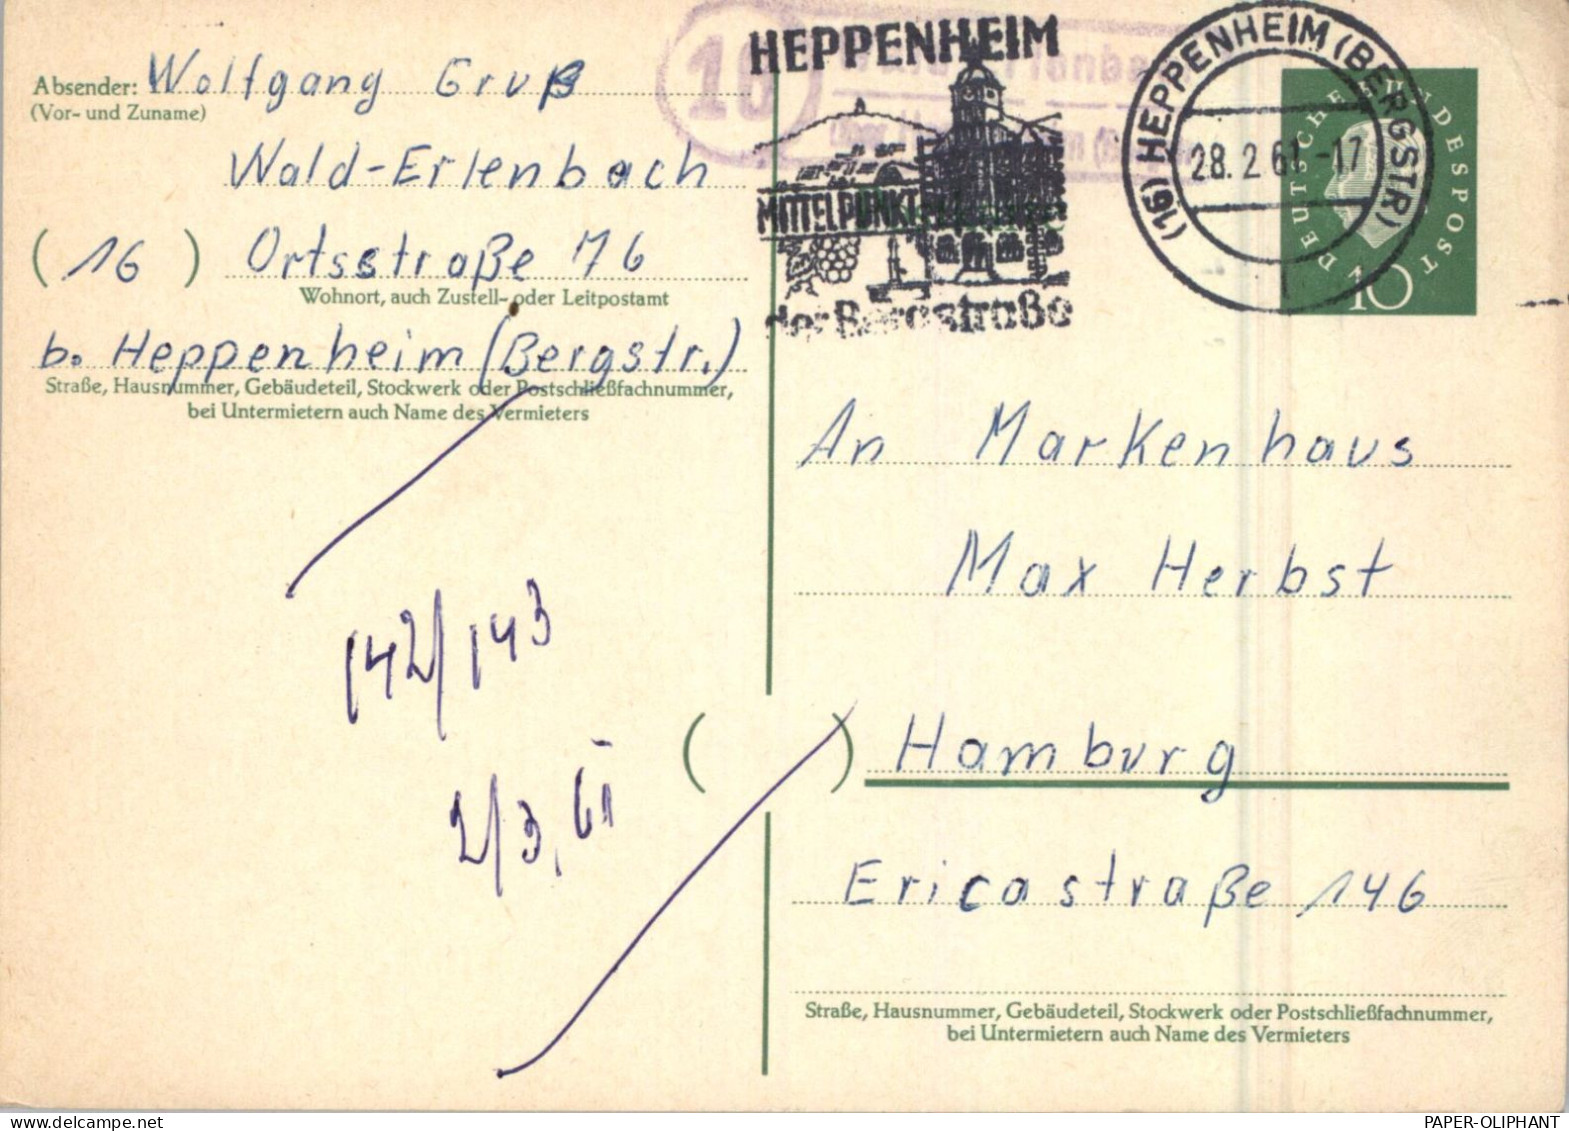 Absender: Wolfgang Gruß
(Vor- und Zuname)
Wald-Erlenbach
(16) Ortsstraße 76
Wohnort, auch Zustell- oder Leitpostamt
b. Heppenheim (Bergstr.)
Straße, Hausnummer, Gebäudeteil, Stockwerk oder Postschließfachnummer,
bei Untermietern auch Name des Vermieters
142/143
2/3.61
16
HEPPENHEIM
MITTELPUNKT
der Bergstraße
(16) HEPPENHEIM (BERGSTR)
28.2.61-17
DEUTSCHE BUNDESPOST
10
An Markenhaus
Max Herbst
( ) Hamburg
Ericastraße 146
Straße, Hausnummer, Gebäudeteil, Stockwerk oder Postschließfachnummer,
bei Untermietern auch Name des Vermieters
PAPER-OLIPHANT